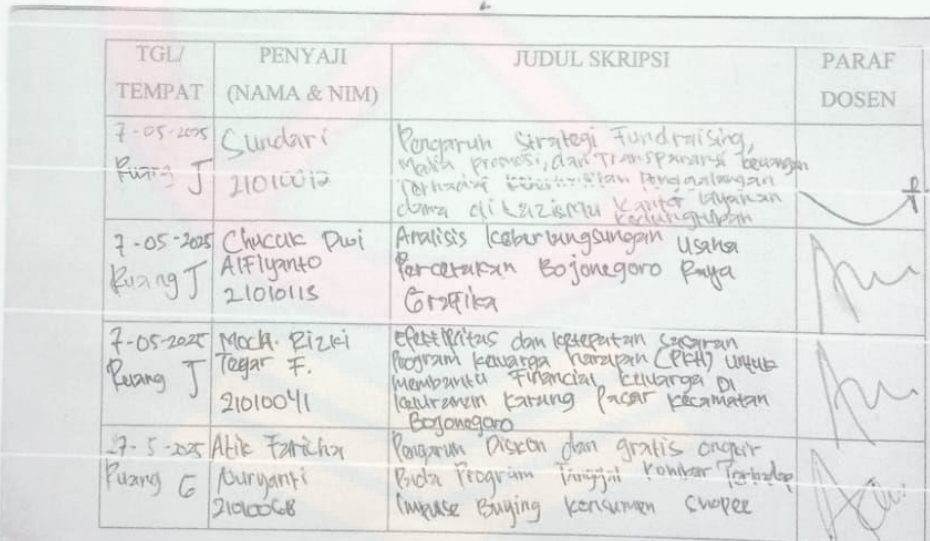 TGL/
TEMPAT
PENYAJI
(NAMA & NIM)
JUDUL SKRIPSI
PARAF
DOSEN
7-05-2025
Ruang J
Sundari
21010012
Pengaruh Strategi Fundraising,
Media promosi, dan Transparansi keuangan
Terhadap Penggalangan
dana di Lazismu Kantor Layanan
7-05-2025
Ruang J
Chucuk Dwi
Alflyanto
21010113
Analisis keberlangsungan usaha
Percetakan Bojonegoro Raya
Graffika
7-05-2025
Ruang J
Moch. Rizki
Tegar F.
21010041
Efektifitas dan ketepatan sasaran
Program keluarga harapan (PKH) untuk
Membantu Financial keluarga Di
Karang Pacar kecamatan
Bojonegoro
27-5-2025
Ruang G
Atik Faricha
Nuryanti
21010068
Pengaruh Diskon dan gratis ongkir
Pada Program Tanggal Kembar Terhadap
Impuse Buying konsumen